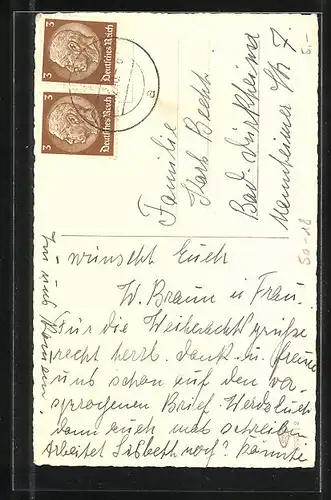 3
Deutsches Reich
3
Deutsches Reich
a
5.-
Familie
Karl Becht
Bad-Dürkheim
Mannheimer Str 7
50-18
- wünscht Euch
W. Braun u Frau.
Für die Weihnacht grüße
recht herzl. dank u. freue
uns schon auf den ver-
sprozenen Brief. Werds Euch
dann euch mal schreiben
Arbeitet Lisbeth noch? könnte